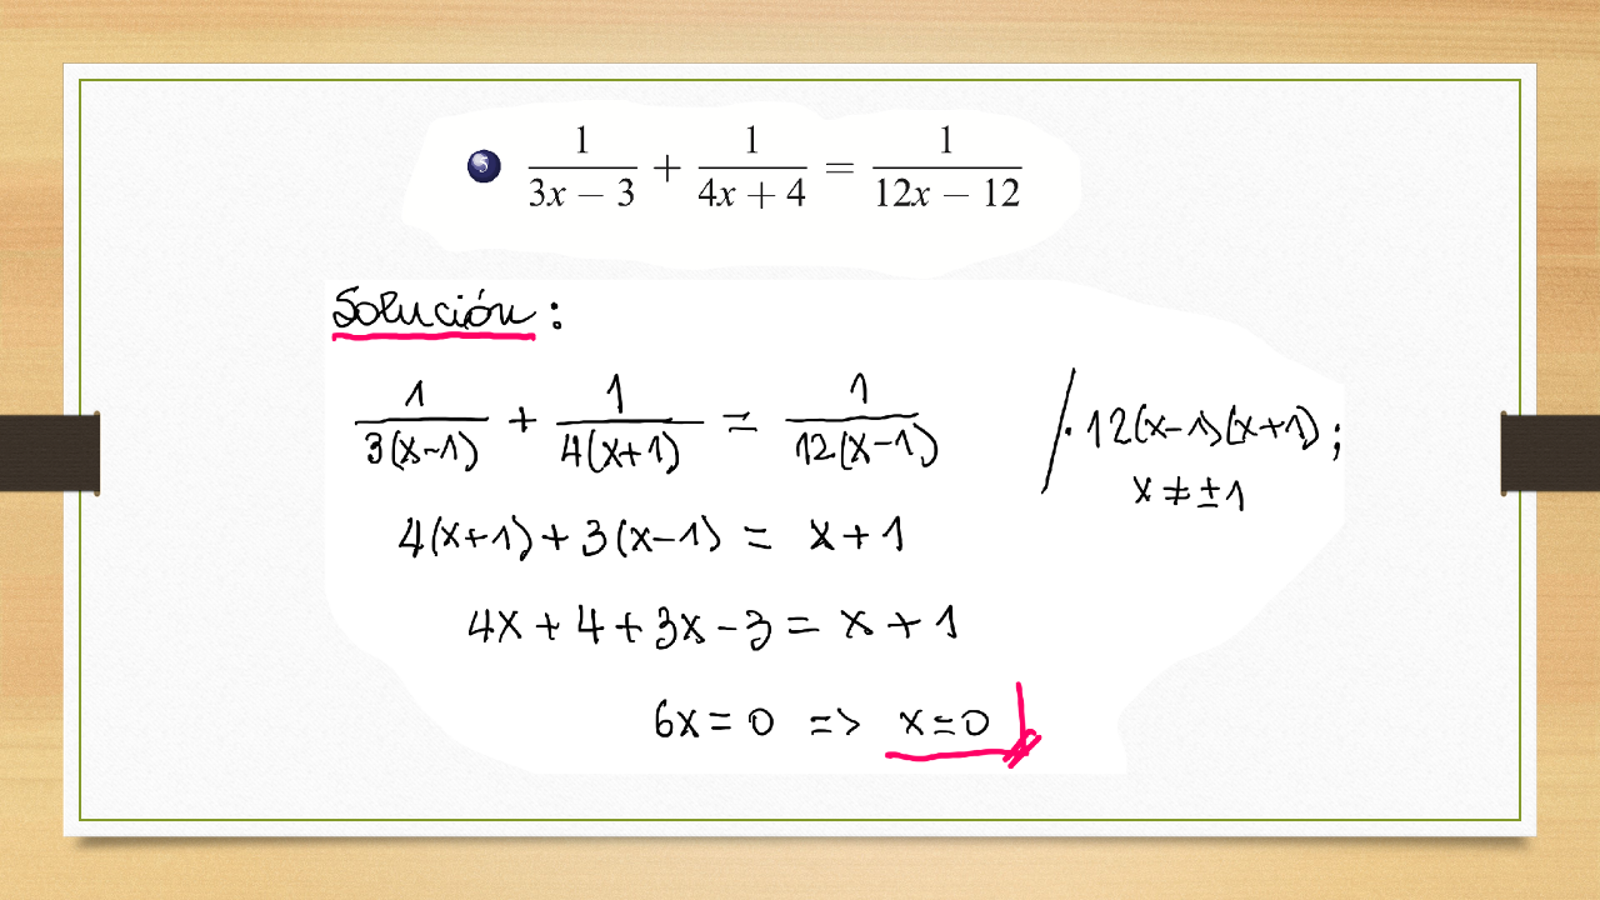 5 1/(3x − 3) + 1/(4x + 4) = 1/(12x − 12)
Solución:
1/(3(x-1)) + 1/(4(x+1)) = 1/(12(x-1)) / · 12(x-1)(x+1);
x ≠ ±1
4(x+1) + 3(x-1) = x+1
4x + 4 + 3x - 3 = x + 1
6x = 0 => x = 0